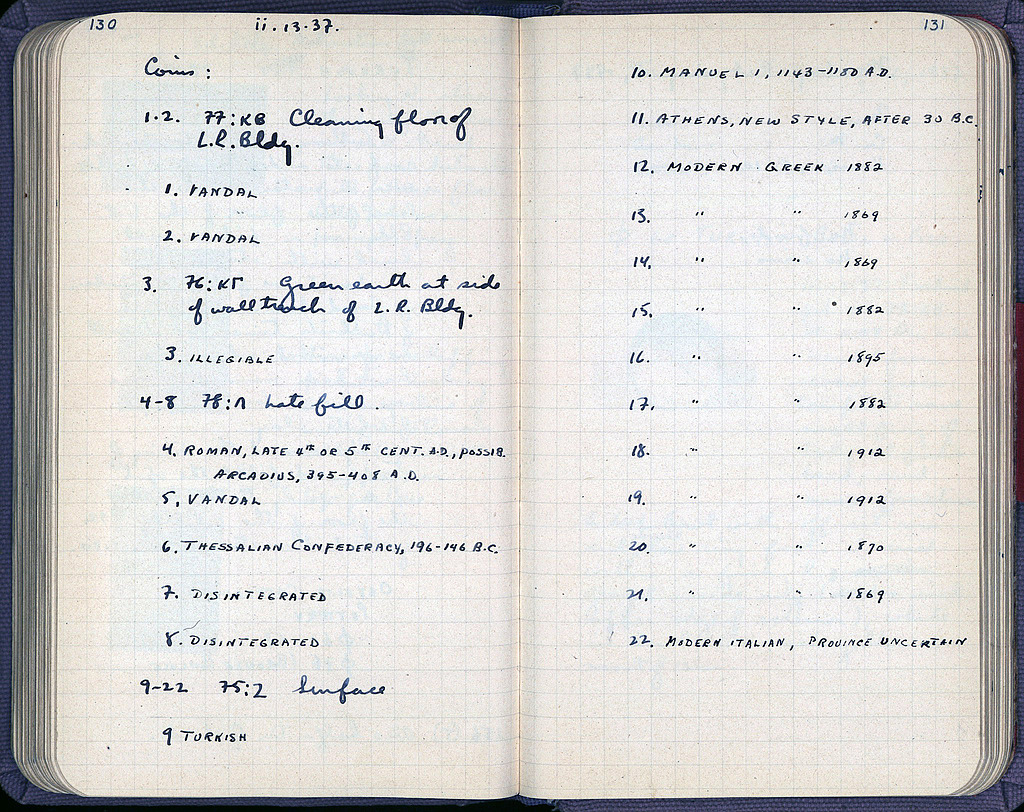 130
ii.13.37.
Coins:
1.2. 77:ΚΒ Cleaning floor of
L.R. Bldg.
1. VANDAL
2. VANDAL
3. 76:ΚΓ Green earth at side
of wall trench of L.R. Bldg.
3. ILLEGIBLE
4-8 78:Λ Late fill.
4. ROMAN, LATE 4TH OR 5TH CENT. A.D., POSSIB.
ARCADIUS, 395-408 A.D.
5, VANDAL
6. THESSALIAN CONFEDERACY, 196-146 B.C.
7. DISINTEGRATED
8. DISINTEGRATED
9-22 75:Z Surface
9 TURKISH
131
10. MANUEL I, 1143-1180 A.D.
11. ATHENS, NEW STYLE, AFTER 30 B.C.
12. MODERN GREEK 1882
13. " " 1869
14. " " 1869
15. " " 1882
16. " " 1895
17. " " 1882
18. " " 1912
19. " " 1912
20. " " 1870
21. " " 1869
22. MODERN ITALIAN, PROVINCE UNCERTAIN